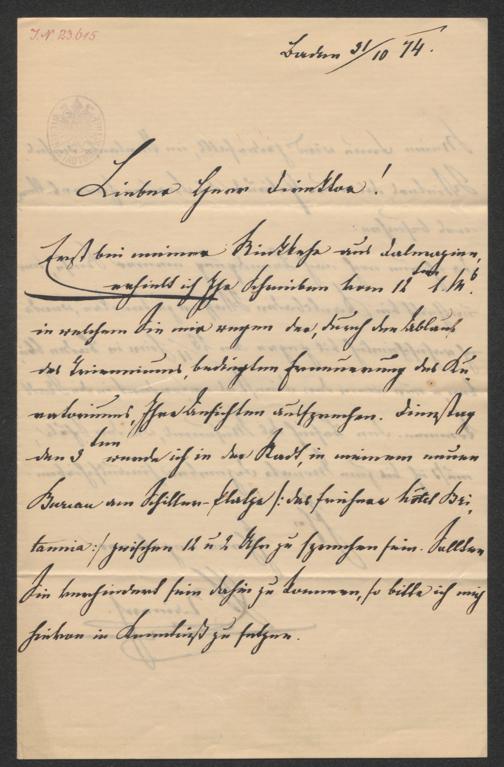 I.N 23.615
Baden 31/10 74.
Lieber Herr Direktor!
Erst bei meiner Rückkehr aus Dalmazien,
erhielt ich Ihr Schreiben vom 12ten l. Mts.
in welchem Sie mir wegen der, durch den Ablauf
des Trienniums, bedingten Erneuerung des Ku-
ratoriums, Ihre Ansichten aussprechen. Dienstag
den 3ten werde ich in der Stadt, in meinem neuen
Bureau am Schiller-Platze /: das frühere hôtel Bri-
tannia :/ zwischen 12 u 2 Uhr zu sprechen sein. Sollten
Sie verhindert sein dahin zu kommen, so bitte ich mich
hievon in Kenntniß zu setzen.